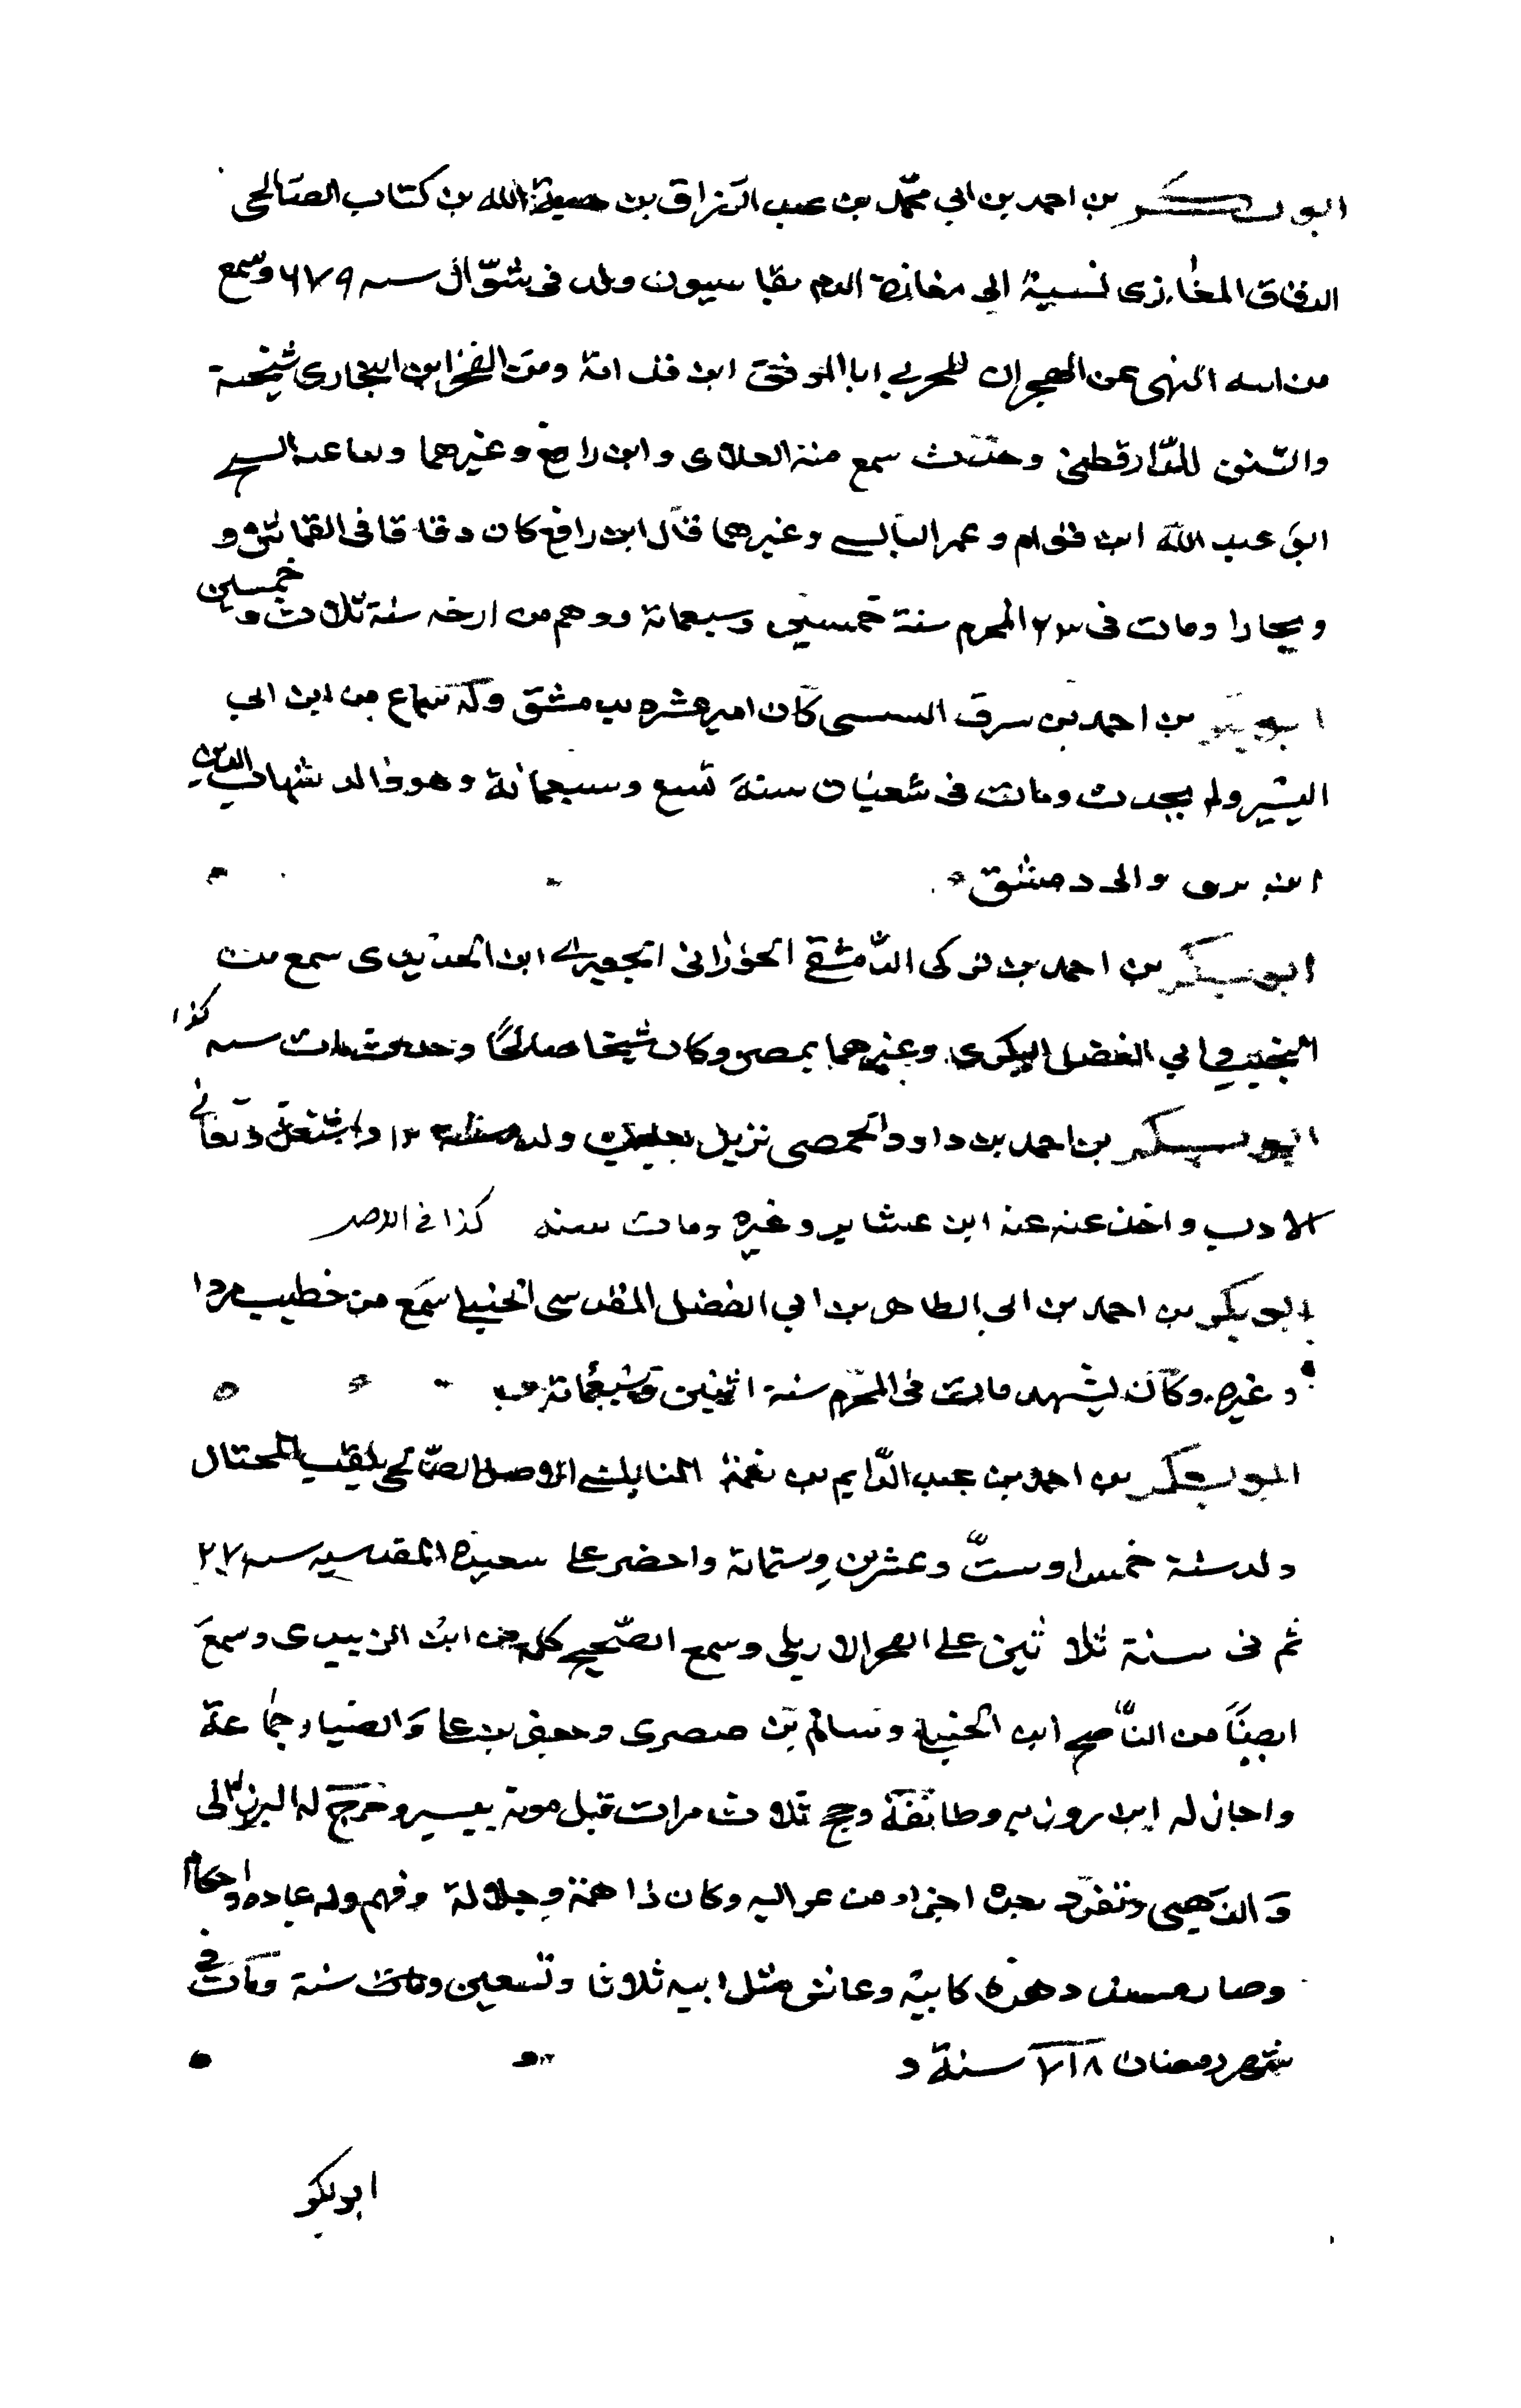 ابو بكر بن احمد بن ابي محمّد بن عبد الرزاق بن هبة الله بن كتاب الصالحى
الدقاق المغازى نسبة الى مغازة الدم بقاسيون ولد فى شوّال سنه ٦٧٩ وسمع
من النهى عن الهجران للحربي ابا الموفق ابن قدامة ومن الفخر ابن البخارى شيخته
والسّنن للدّارقطنى وحدّث سمع منه العلاى وابن رافع وغيرهما
ابى عبد الله ابن قوام وعمر البالسى وغيرهما قال ابن رافع كان دقاقا فى القماش و
ومات فى ٢٣ المحرم سنة خمسين وسبعمائة ووهم من ارخه سنة ثلاث وخمسين
ابو بكر بن احمد بن كان امير عشره بدمشق وله سماع من ابن ابى
اليسر ولم يحدث ومات فى شعبان سنة تسع وسبعمائة وهو والد شهاب الدين
ابن والى دمشق
ابو بكر بن احمد بن تركى الدّمشقى الحورانى الجعبرى ابن الحديدى سمع من
النجيب وابي الفضل البكرى وغيرهما بمصر وكان شيخا صالحًا وحدث مات سنه كذا
ابو بكر بن احمد بن داود الحمصى نزيل ولد سنة واشتغل وتعانى
الادب واخذ عنه عنه ابن عشاير وغيره ومات سنه كذا فى الاصل
ابو بكر بن احمد بن ابى الطاهر بن ابي الفضل المقدسى الحنبلى سمع من خطيب مردا
وغيره وكان يشهد مات فى المحرّم سنة اثنين وسبعمائة
ابو بكر بن احمد بن عبد الدّايم بن نعمة النابلسى الاصل الصّالحى يلقب المحتال
ولد سنة خمس او ستّ وعشرين وستمائة واحضر على المقدسيه سنه ٢٧
ثم فى سنة ثلاثين على الاربلى وسمع الصّحيح كله من ابن الزبيدى وسمع
ايضًا من النّاصح ابن الحنبلى وسالم بن صصرى وجعفر بن على والضياء وجماعة
واجاز له ابن روزبه وطائفة وحج ثلاث مرات قبل موته بيسير وخرج له البرزالى
والذهبى وتفرد اجزاء من عواليه وكان ذا همة وجلالة وفهم وله عباده واحكام
وصار مسند دهره كابيه وعاش مثل ابيه ثلاثا وتسعين سنة ومات فى
شهر رمضان ٧١٨ سنة و
ابو بكر